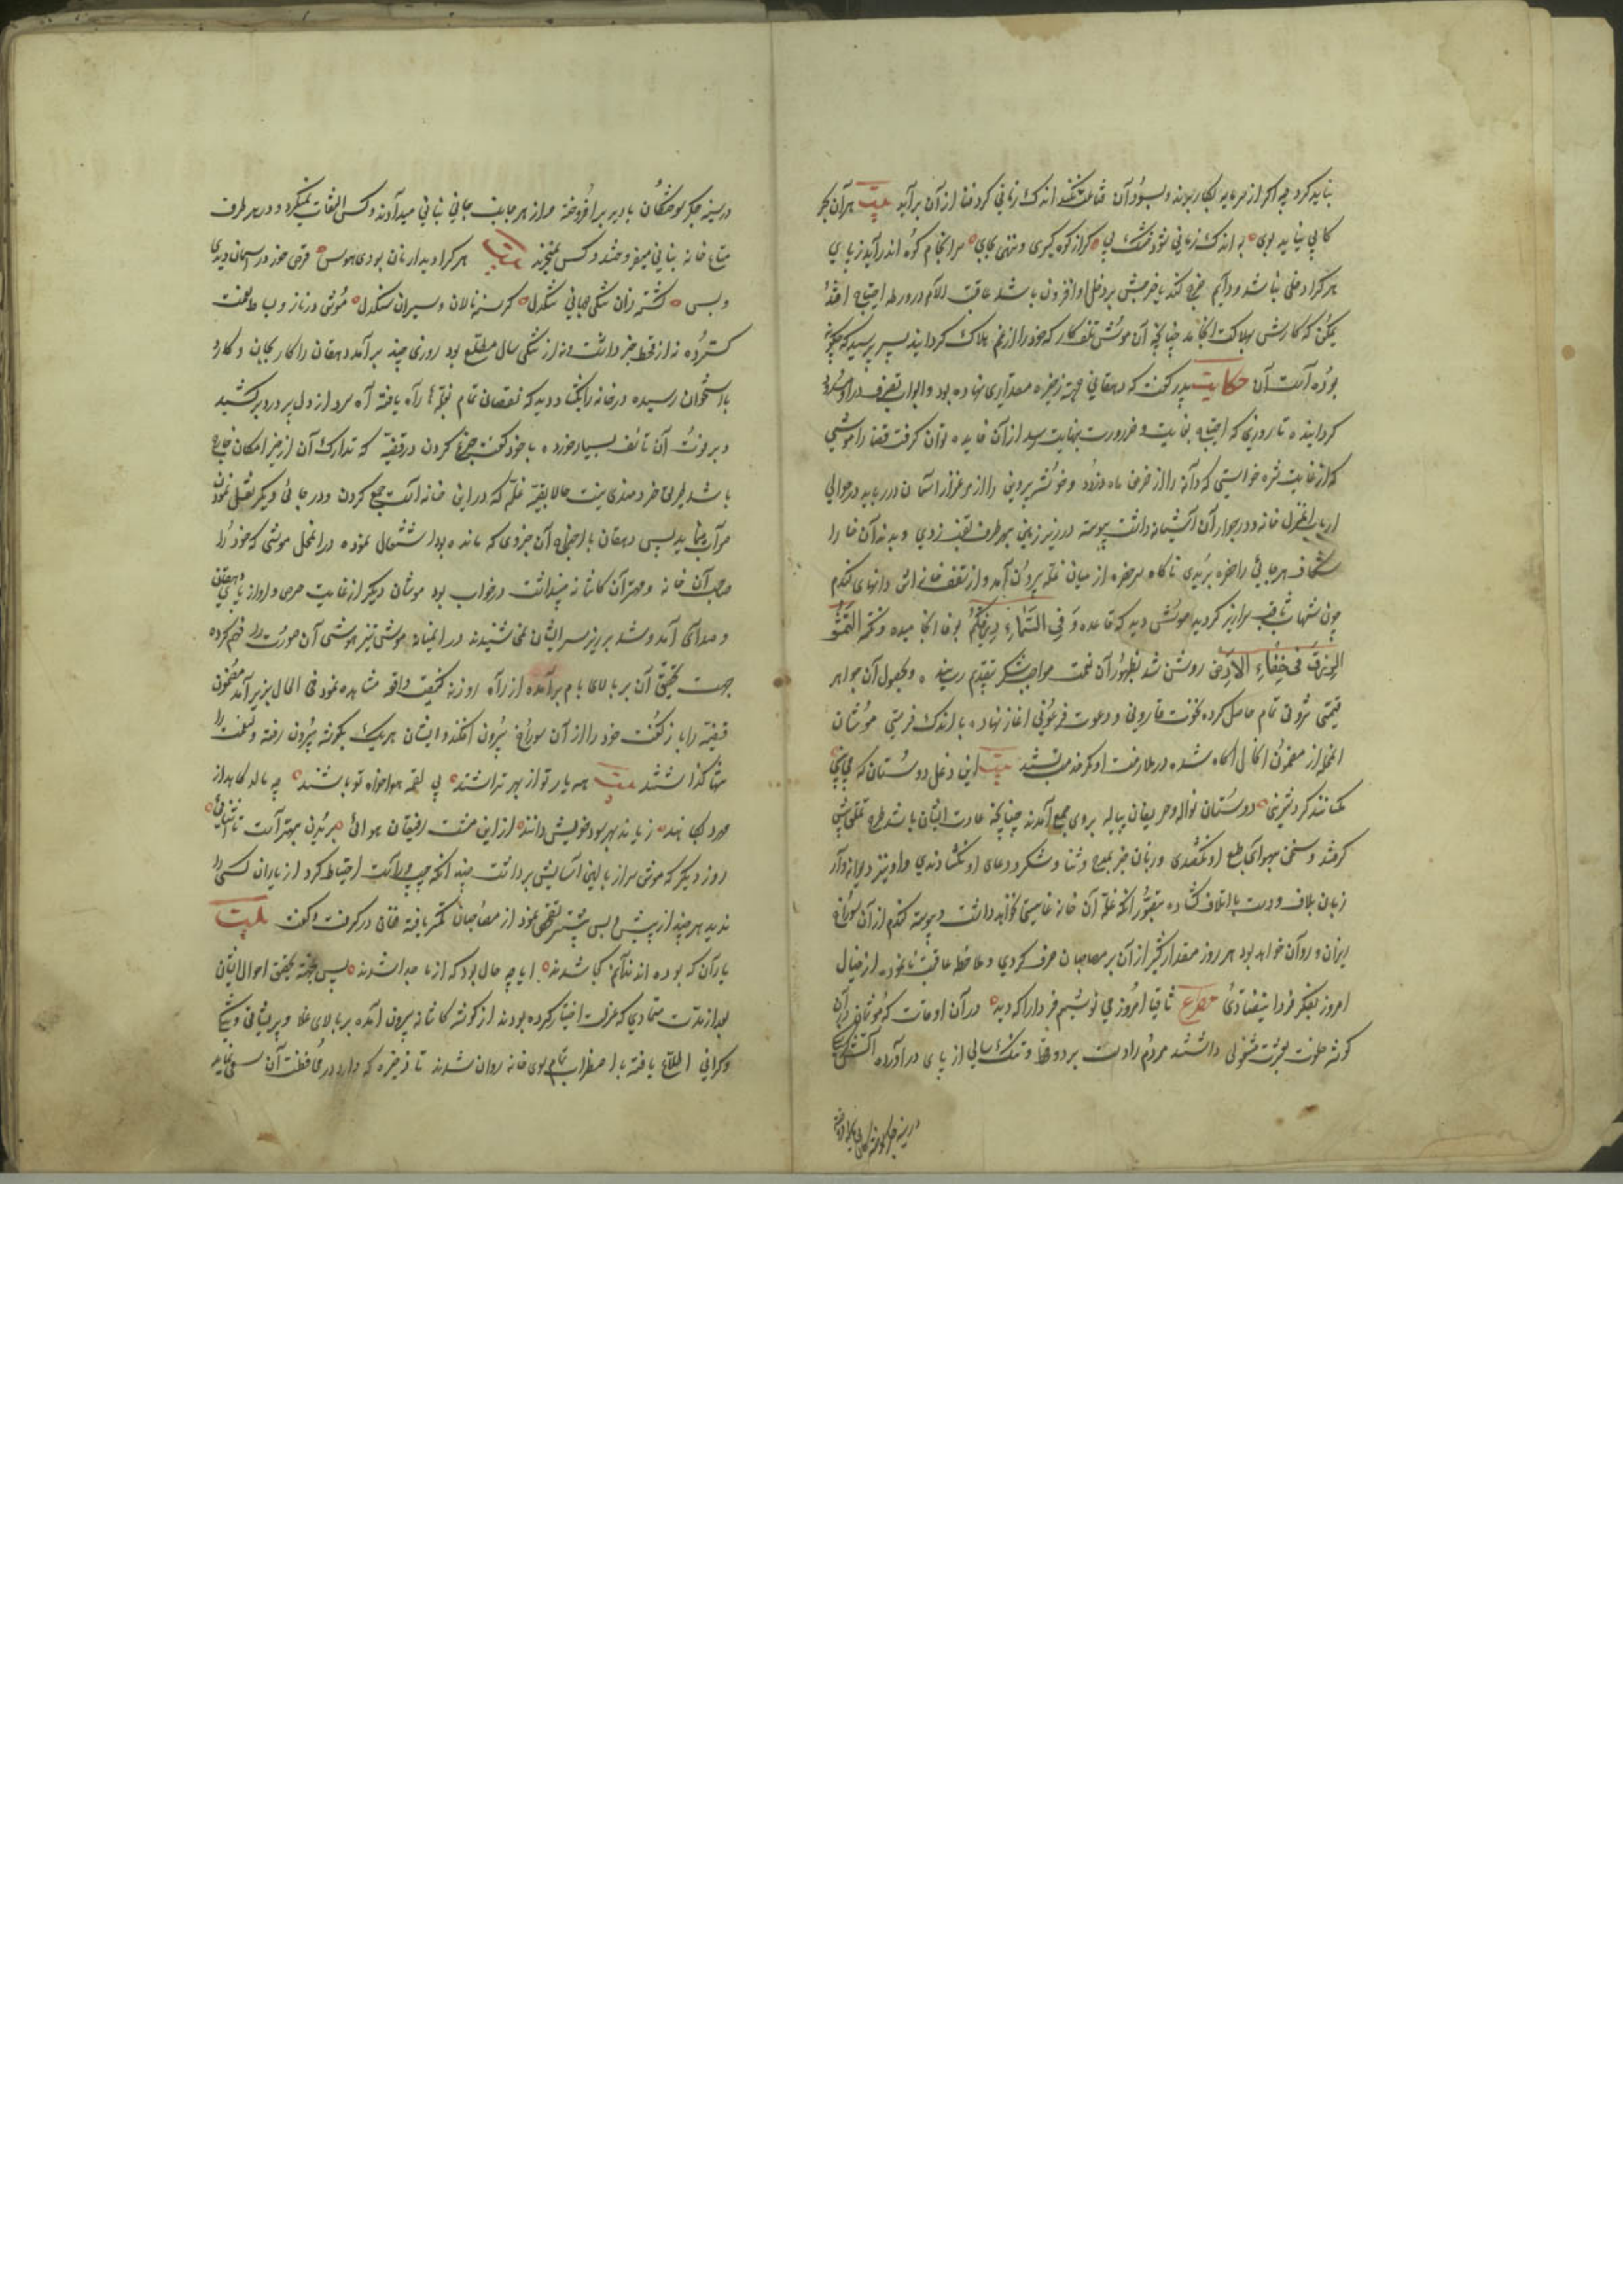 نباید کرد چه اگر از سرمایه بکار برند و بسود آن قناعت نکنند اندک زمانی کرد فنا از آن برآید بیت هر آن بحر
کابی نیاید بوی به اندک زمانی شود خشک پی گر از کوه گیری و ننهی بجای سرانجام کوه اندر آید ز پای
هر کرا دخلی نباشد و دایم خرج کند یا خرجش بر دخل او افزون باشد عاقبت الامر در ورطه احتیاج افتد
یمکن که کارش بهلاکت انجامد چنانچه آن موش تلف کار که خود را از غم هلاک گردانید پسر پرسید که چگونه
بوده است آن حکایت پدر گفت که دهقانی جهة ذخیره مقداری نهاده بود و ابواب تصرف در او
گردانیده تا روزی که احتیاج بغایت و ضرورت بنهایت رسد از آن فایده توان گرفت قضا را موشی
که از غایت شره خواستی که دانه را از خرمن ماه دزدد و خوشه پروین را از مرغزار آسمان در رباید در حوالی
آن منزل خانه و در جوار آن آشیانه داشت پیوسته در زیر زمین بهر طرف نقب زدی و بدندان خارا
شکاف هر جائی را حفره بریدی ناگاه سر حفره از میان غله بیرون آمد و از سقف خانه اش دانهای گندم
چون شهاب ثاقب سرازیر گردید موش دید که وعده وَفِی السَّمَاءِ رِزْقُكُمْ بوفا انجامیده و نکته التَمِسُوا
الرِّزْقَ فِی خَفَاءِ الاَرْضِ روشن شد بظهور آن نعمت مواجب شکر بتقدیم رسانیده و بحصول آن جواهر
قیمتی ثروتی تمام حاصل کرده نخوت قارونی و دعوت فرعونی آغاز نهاده باندک فرصتی موشان
المحله از مضمون الحال آگاه شده در ملازمت او کمر خدمت بستند بیت این دغل دوستان که می بینی
مگسانند گرد شیرینی دوستان نواله و حریفان پیاله بروی جمع آمدند چنانچه عادت ایشان باشد طرح تملق پیش
گرفتند و سخن جز بهوای طبع او نگفتندی و زبان جز بمدح و ثنا و شکر و دعای او نگشادندی و او نیز دیوانه وار
زبان بلاف و دست باتلاف گشاده بتصور آنکه غله آن خانه غایتی نخواهد داشت و پیوسته گندم از آن سوراخ
ریزان و روان خواهد بود هر روز مقدار کثیر از آن بر مصاحبان صرف کردی و ملاحظه عاقبت نانموده از خیال
امروز بفکر فردا نیفتادی مصرع ساقیا امروز می نوشیم فردا را که دید در آن اوقات که موشان در آن
گوشه خلوت بعشرت مشغولی داشتند مردم را دست برد قحط و تنگ سالی از پای درآورده آتش
در سینه جگر سوختگان
در سینه جگر سوختگان بادیه برافروخته و از هر جانب جانی بنانی میدادند و کس التفات نمیکرد و در هر طرف
متاع خانه بنانی میفروختند و کس نمیخرید بیت هر کرا دیدار نان بودی هوس قرص خور در آسمان دیدی
و بس گشته زان تنگی جهانی تنگدل گرسنه نالان و سیران سنگدل موش در ناز و بساط نعمت
گسترده نه از قحط خبر داشت و نه از تنگی سال مطلع بود روزی چند برآمد دهقان را کار بجان و کارد
باستخوان رسیده در خانه را بگشاد دید که نقصان تمام بغله راه یافته آه سرد از دل پر درد برکشید
و بر فوت آن تاسف بسیار خورد و با خود گفت جزع کردن در قضیه که تدارک آن از حیز امکان خارج
باشد طریق خردمندی نیست حالا بقیه غله که در این خانه است جمع کردن و در جائی دیگر نقل نمودن
صواب مینماید پس دهقان باخراج آن جزوی که مانده بود اشتغال نمود و در المحل موشی که خود را
صاحب آن خانه و مهتر آن کاشانه میپنداشت در خواب بود موشان دیگر از غایت حرص آواز پای دهقان
و صدای آمد و شد بر زیر سر ایشان نمی شنیدند در آنمیان موشی تیزهوشی آن صورت را فهم کرده
جهت تحقیق آن بر بالای بام برآمده از راه روزنه کیفیت واقعه مشاهده نمود فی الحال بزیر آمد مضمون
قضیه را بازگفت خود را از آن سوراخ بیرون افکند و ایشان هر یک بگوشه بیرون رفته ولی نعمت را
تنها گذاشتند بیت همه یار تو از بهر تراشند پی لقمه هوا خواه تو باشند چو مالت کاهد از
مهر تو کاهند زیانت بهر سود خویش دانند از این مشت رفیقان هوائی بریدن بهتر است تا آشنائی
روز دیگر که موش سر از بالین آسایش برداشت چندانکه چپ و راست احتیاط کرد از یاران کسی را
ندید هر چند از پیش و پس بیشتر تفحص نمود از مصاحبان کمتر یافته فغان درگرفت و گفت بیت
یاران که بوده اند ندانم کجا شدند آیا چه حال بود که از ما جدا شدند پس بجهت تحقیق احوال ایشان
بعد از مدت متمادی که عزلت اختیار کرده بودند از گوشه کاشانه بیرون آمده بر بلای غلا و پریشانی و تنگی
و گرانی اطلاع یافته باضطراب تمام سوی خانه روان شدند تا ذخیره که دارد در محافظت آن سعی نماید